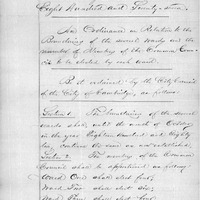 Eight Hundred and Twenty-
An Ordinance in Relation to the
Numbering of the several wards and the
number of Members of the Common Coun-
cil to be elected by each ward.
Be it ordained by the City Council
of the City of Cambridge, as follows:
Section 1. The numbering of the several
wards shall, until the month of October
in the year Eighteen hundred and Eighty
continue the same as now established.
Section 2. The number of the Common
Council shall be apportioned as follows:
Ward One shall elect four;
Ward Two shall elect six;
Ward Three shall elect four;